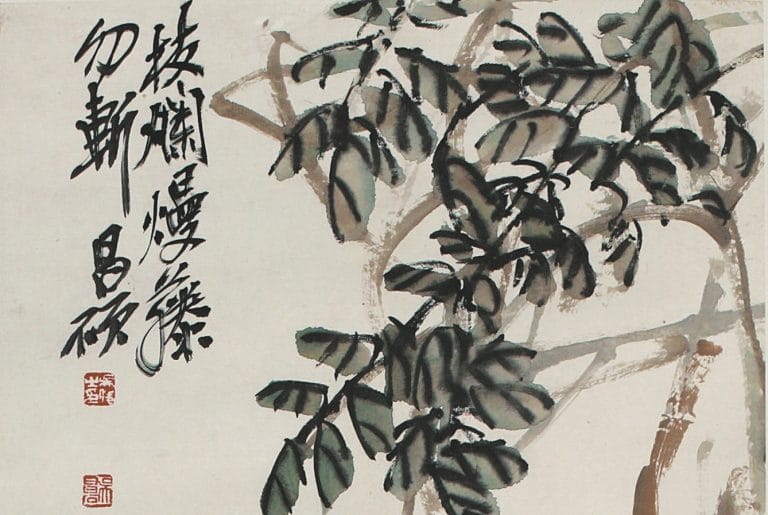 枝爛熳藤
勿斬
昌碩